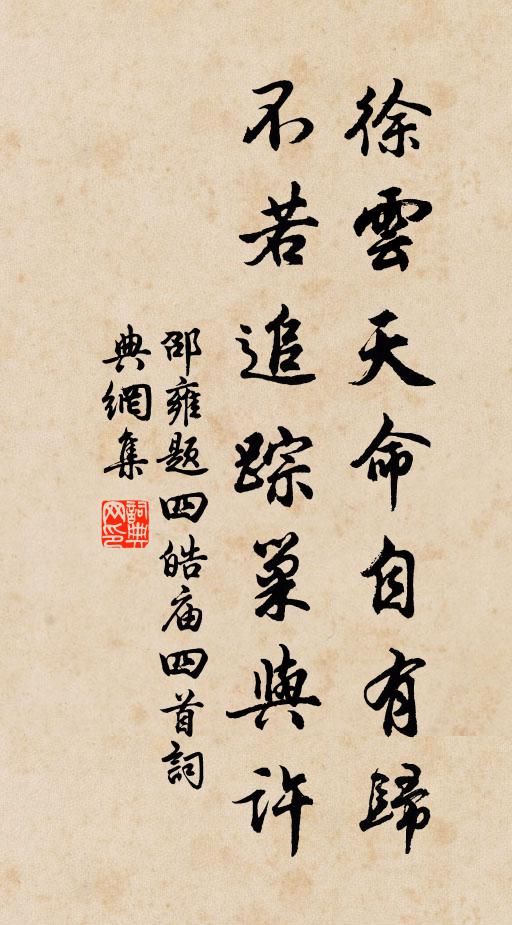 徐雲天命自有歸
不若追踪巢與許
邵雍題四皓庙四首詞
典網集
詞典网印